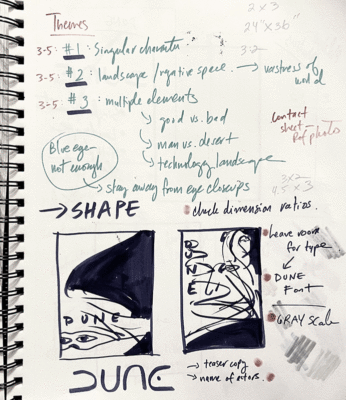 Themes
2 x 3
24" x 36"
3-5: #1: Singular character
3:2
3-5: #2: landscape/negative space. → vastness of world
3-5: #3: multiple elements
contact sheet - Ref photos
good vs. bad
man vs. desert
technology, landscape
Blue eye - not enough
stay away from eye closeups
3 x 2
4.5 x 3
→ SHAPE
check dimension ratios.
leave room for type
DUNE Font
GRAY Scale
DUNE
DUNE
→ teaser copy
→ name of actors.